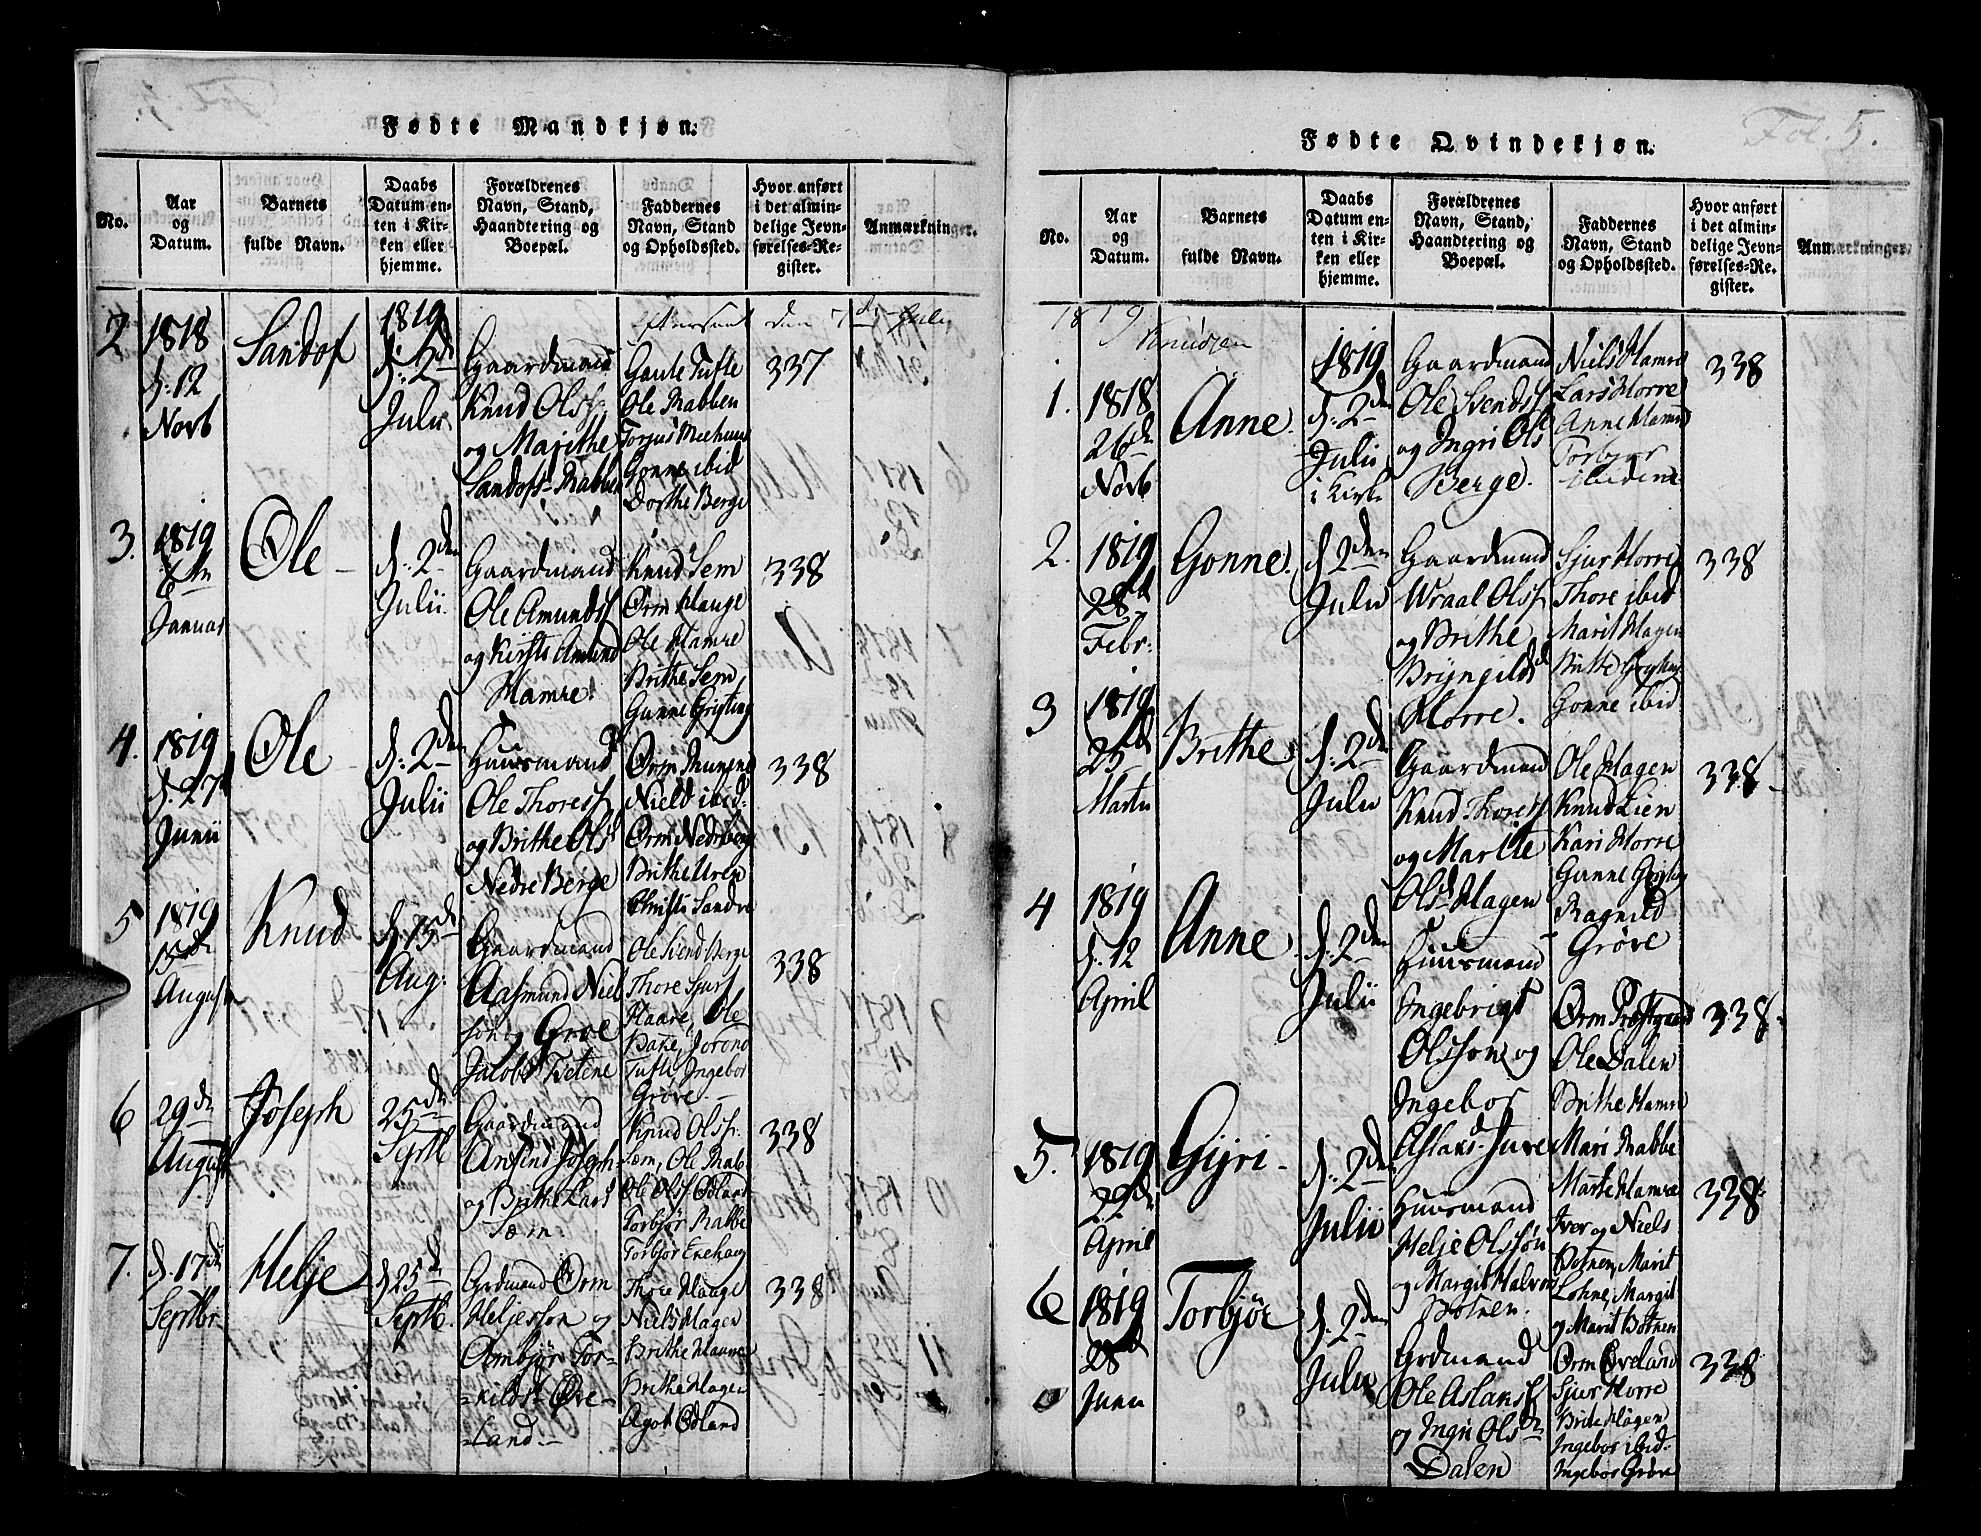 Fødte Mandkjøn.
No.
Aar og Datum.
Barnets fulde Navn.
Daabs Datum enten i Kirken eller hjemme.
Forældrenes Navn, Stand, Haandtering og Boepæl.
Faddernes Navn, Stand og Opholdssted.
Hvor anført i det almindelige Jevnførelses-Register.
Anmærkninger.
2
1818
d. 12
Novb
Sandof
1819
d. 2den
Julii
Gaardmand
Knud Olss
og Marithe
Sandofs Rabben
Gaute Tufte
Ole Rabben
Torjus
Gonne ibid
Dorthe Berge
337
3.
1819
6te
Januar
Ole
d. 2den
Julii
Gaardmand
Ole Amundss
og Kirsti Amund
Hamre
Knud Sem
Orm Hauge
Ole Hamre
Brithe Sem
Gunne Grigting
338
4.
1819
d. 27
Junii
Ole
d. 2den
Julii
Huusmand
Ole Thoress
og Brithe Ols
Nedre Berge
Orm
Niels ibid
Orm Nedreberg
Brithe Uren
Sandre
338
5
1819
15de
August
Knud
d. 15de
Aug:
Gaardmand
Aasmund Niel
son og Groe
Jacobs Tvetene
Ole Svend Berge
Thore Sjurs
Haare, Ole
Bake, Jorond
Tufte, Ingebor
Grøve
338
6
29de
August
Joseph
25de
Septb
Gaardmand
Amund Joseph
og Brithe Lars
Sæm
Knud Olss
Sæm, Ole Rab
Ole Olss Odland
Torbjør Rabbe
Torbjør Enehaug
338
7.
d. 17de
Septbr
Helje
d 25de
Septb.
Grdmand Orm
Heljesson og
Ambjør Tor-
-kilds Øve-
-land
Thore Hauge
Niels Hagen
Brithe Haave
Brithe Hagen
Agot Odland
338
Fødte Qvindekjøn.
Fol. 5.
No.
Aar og Datum.
Barnets fulde Navn.
Daabs Datum enten i Kirken eller hjemme.
Forældrenes Navn, Stand, Haandtering og Boepæl.
Faddernes Navn, Stand og Opholdssted.
Hvor anført i det almindelige Jevnførelses-Register.
Anmærkninger.
1819
1.
1818
26de
Novb
Anne
1819
d. 2den
Julii
i Kirk
Gaardmand
Ole Svends
og Ingri Ols
Berge.
Niels Hamre
Lars Horre
Anne Hamre
Torbjør
ibidem
338
2.
1819
28de
Febr:
Gonne
d. 2den
Julii
Gaardmand
Wraal Olss
og Brithe
Bryngilds
Horre.
Sjur Horre
Thore ibid
Marit Hagen
Brithe Grigting
Gonne ibid
338
3
1819
25de
Martii
Brithe
d. 2den
Julii
Gaardmand
Knud Thoress
og Marthe
Olsd Hagen
Ole Hagen
Knud Lien
Kari Horre
Gunne Grigting
Ragnild
Grøve
338
4
1819
d. 12
April
Anne
d. 2den
Julii
Huusmand
Ingebrigt
Olsson og
Ingebor
Aslaks Jure
Orm Prøstgaard
Ole Dalen
Brithe Hamre
Mari Rabbe
Marte Hamre
338
5.
1819
22de
April
Gyri
d. 2den
Julii
Huusmand
Helje Olsson
og Margit Halvors
Botnen.
Iver og Niels
Botnen, Marit
Lohne, Margit
og Marit Botnen
338
6
1819
28de
Junii
Torbjør
d. 2den
Julii
Grdmand
Ole Aslaks
og Ingri Ols
Dalen
Orm Øveland
Sjur Horre
Brite Hagen
Ingebor ibid
Ingebor Grøve
338